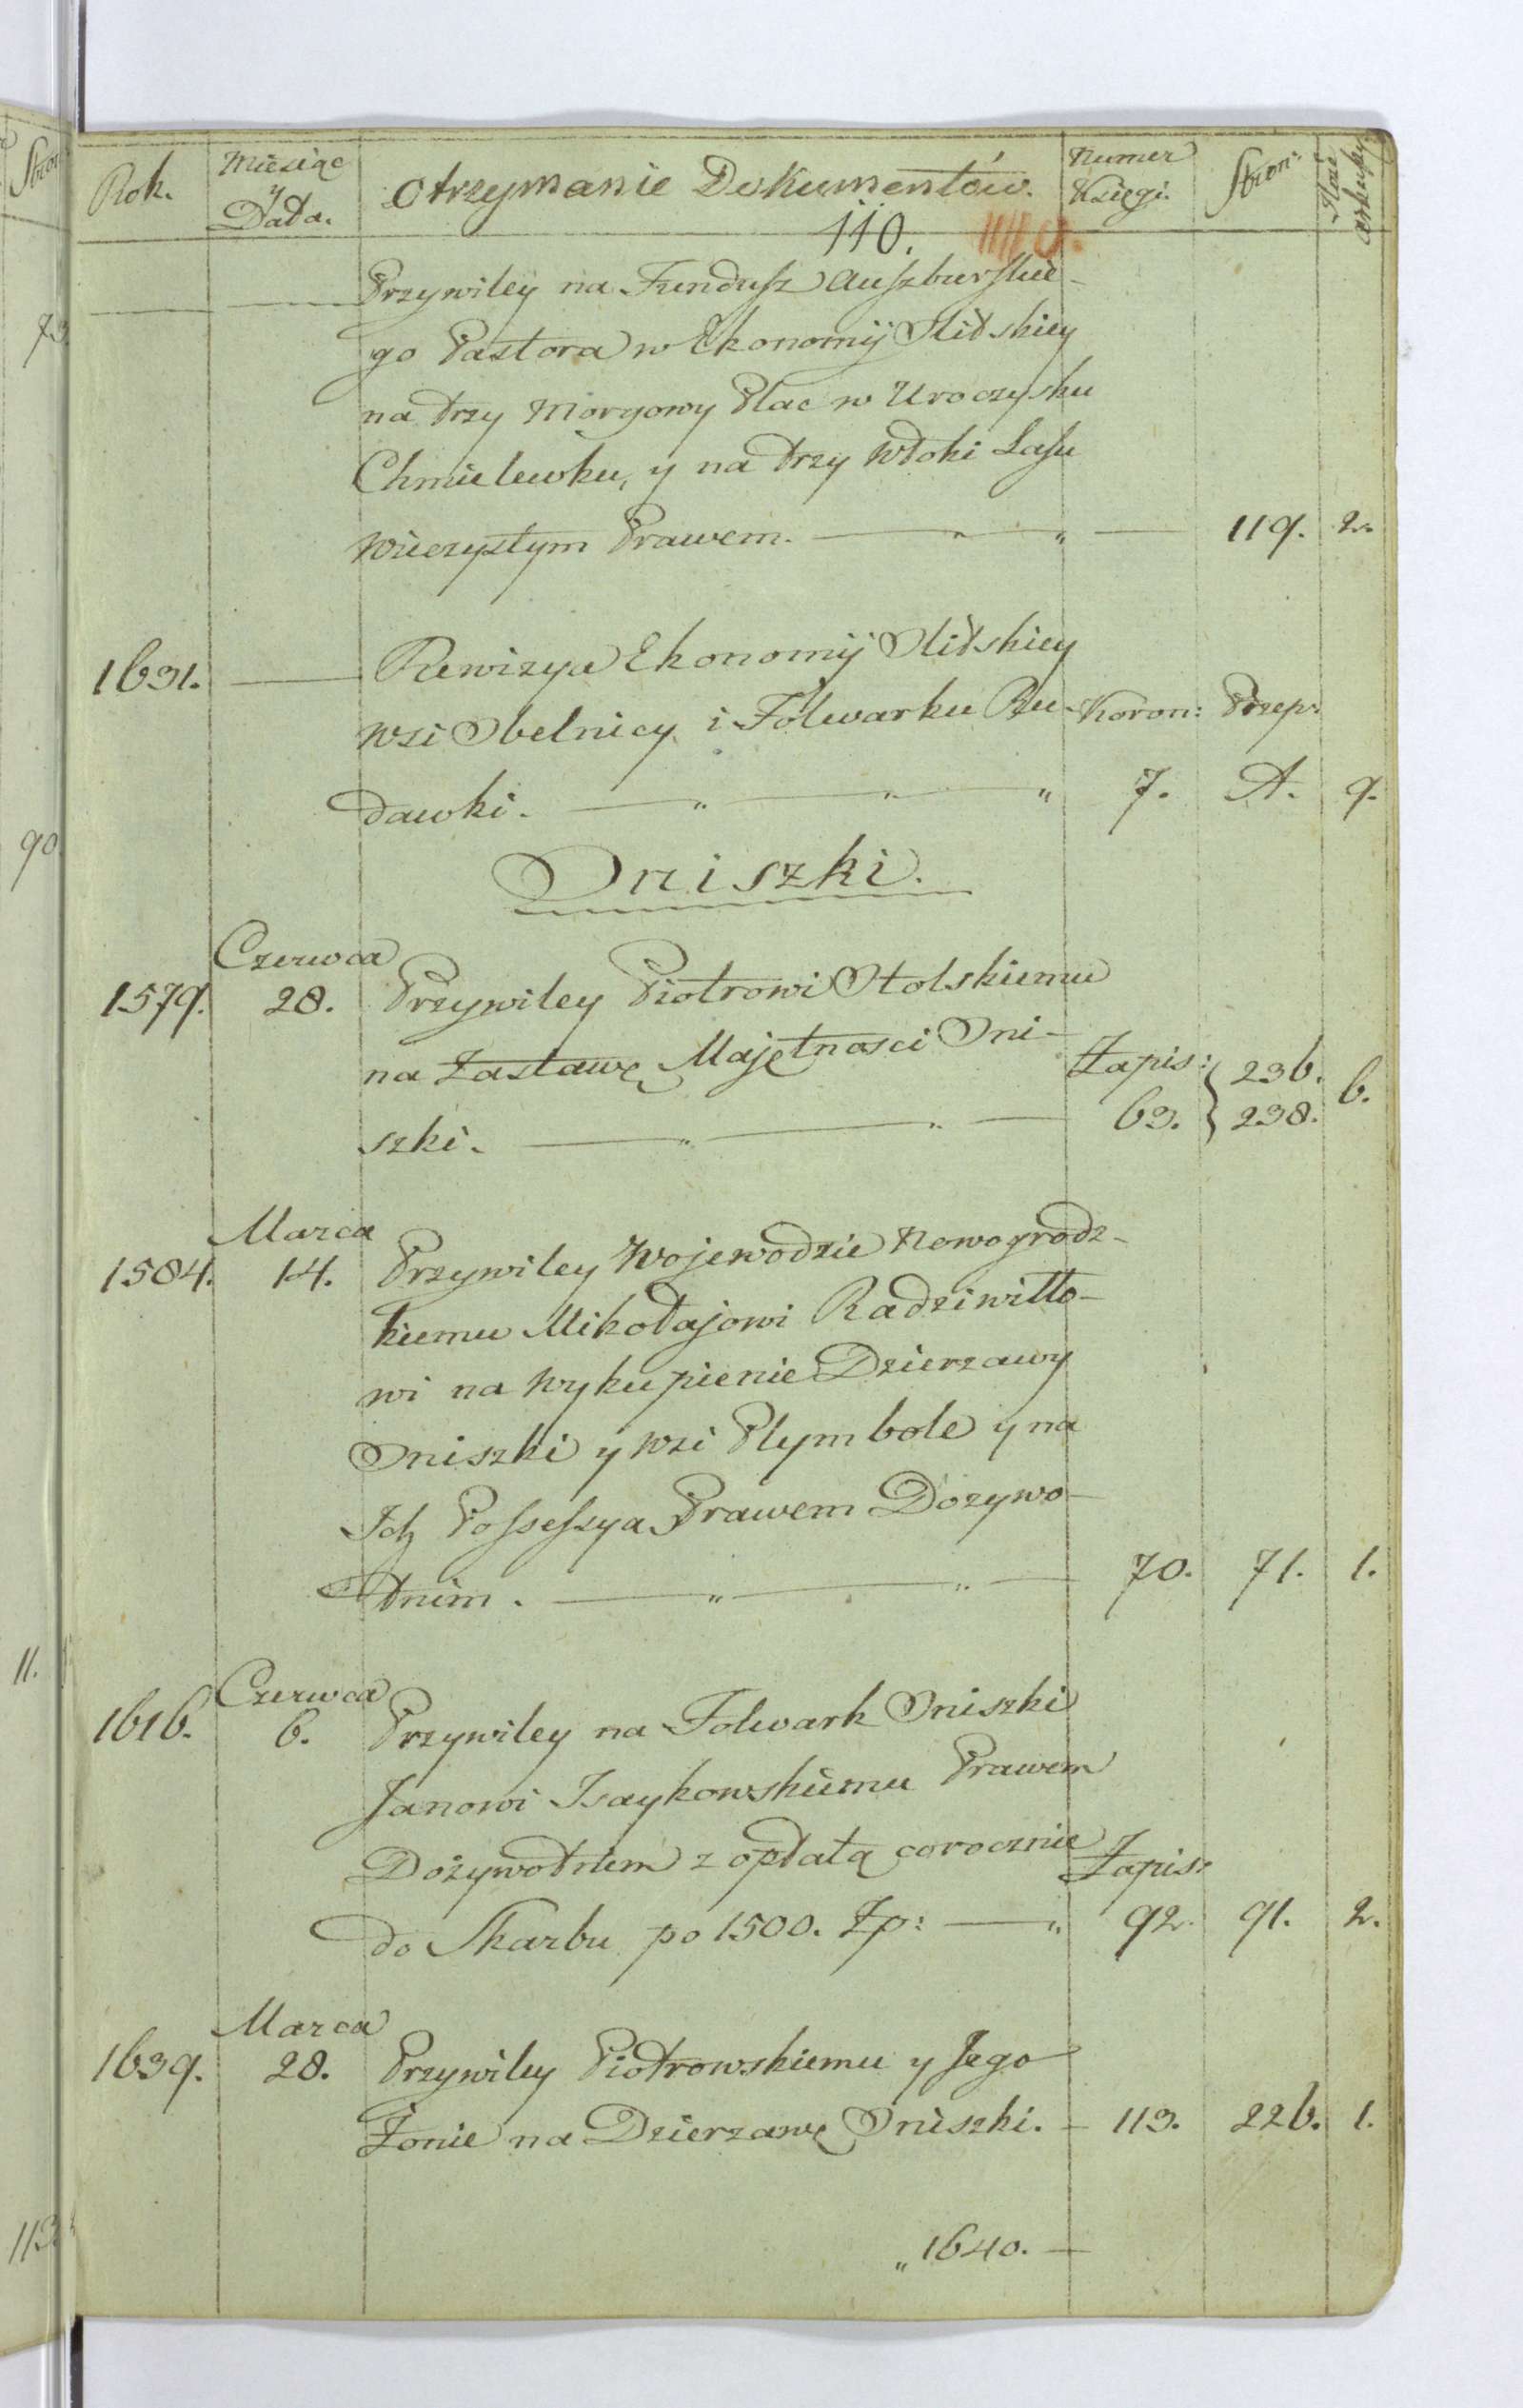 Rok. Miesiąc y Data. Otrzymanie Dokumentów. Numer Księgi. Stron:
110.
Przywiley na Fundusz Auszburskie-
go Pastora w Ekonomij Olitskiey
na trzy Morgowy Plac w Uroczysku
Chmielewku, y na trzy Włoki Lasu
Wieczystym Prawem. — " — " — 119. 2.
1631. — Rewizya Ekonomij Olitskiey
Wsi Obelnicy i Folwarku Ru- Koron: Przep:
dawki. — " — " — " 7. A. 9.
Oniszki.
Czerwca
1579. 28. Przywiley Piotrowi Stolskiemu
na Zastawę Majętnosci Oni- Zapis: 236.
szki. — " — " — 63. 238. 6.
Marca
1584. 14. Przywiley Wojewodzie Nowogrodz-
kiemu Mikołajowi Radziwiłło-
wi na wykupienie Dzierzawy
Oniszki y wsi Plymbole y na
Ich Possessya Prawem Dozywo-
tnim. — " — " — 70. 71. 1.
Czerwca
1616. 6. Przywiley na Folwark Oniszki
Janowi Isaykowskiemu Prawem
Dożywotnem z opłatą corocznie Zapis:
do Skarbu po 1500. Zp: — " 92. 91. 2.
Marca
1639. 28. Przywiley Piotrowskiemu y Jego
Żonie na Dzierzawę Oniszki. — 113. 226. 1.
" 1640. —